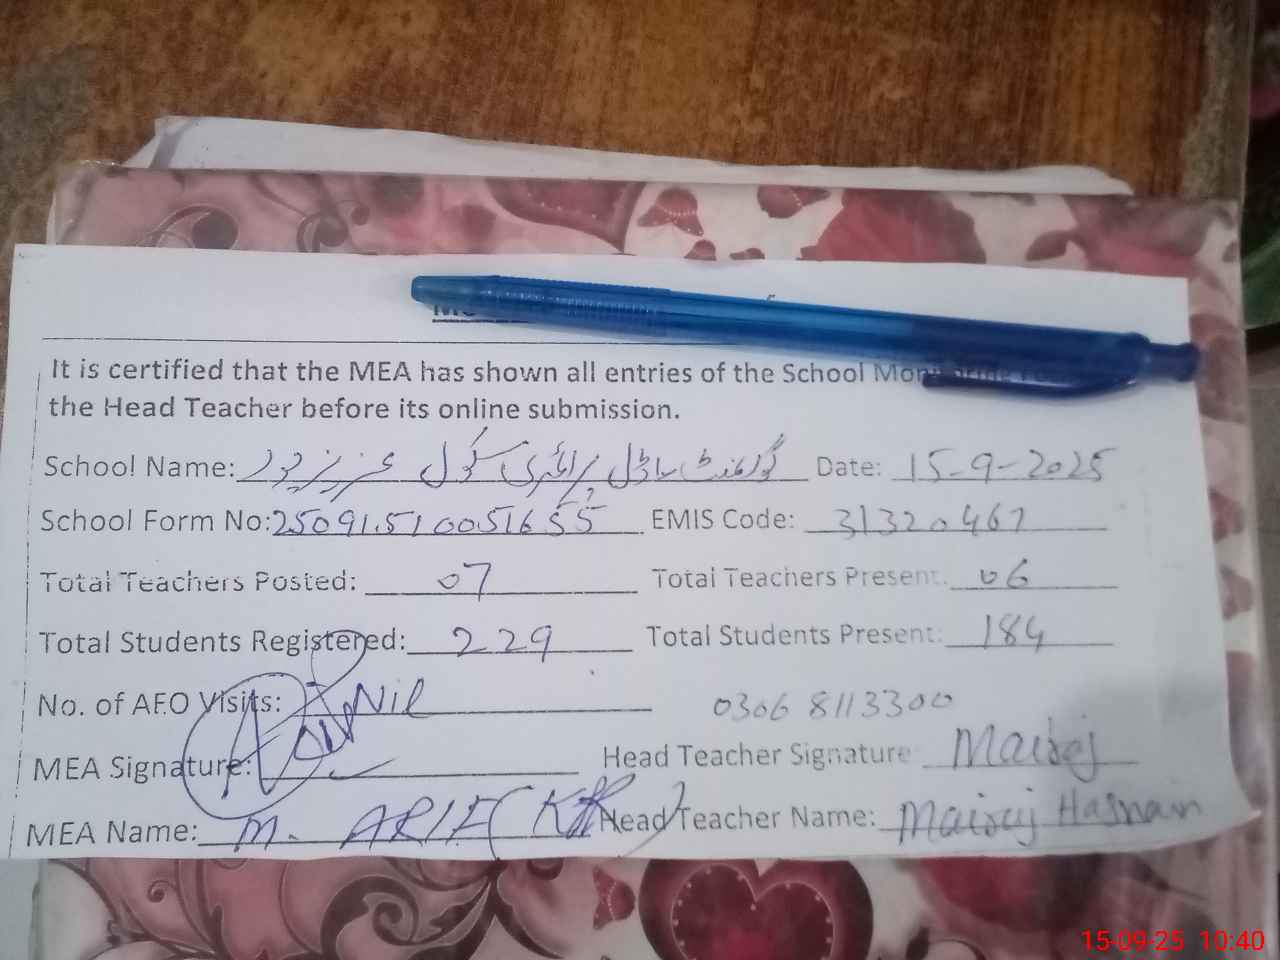 It is certified that the MEA has shown all entries of the School
the Head Teacher before its online submission.
School Name: گورنمنٹ ماڈل پرائمری سکول عزیز پور Date: 15-9-2025
School Form No: EMIS Code: 31320467
Total Teachers Posted: 07 Total Teachers Present: 06
Total Students Registered: 229 Total Students Present: 184
No. of AEO Visits: Nil 0306 8113300
MEA Signature: Head Teacher Signature Mairaj
MEA Name: M. ARIF Head Teacher Name: Mairaj Hasnain
15-09-25 10:40